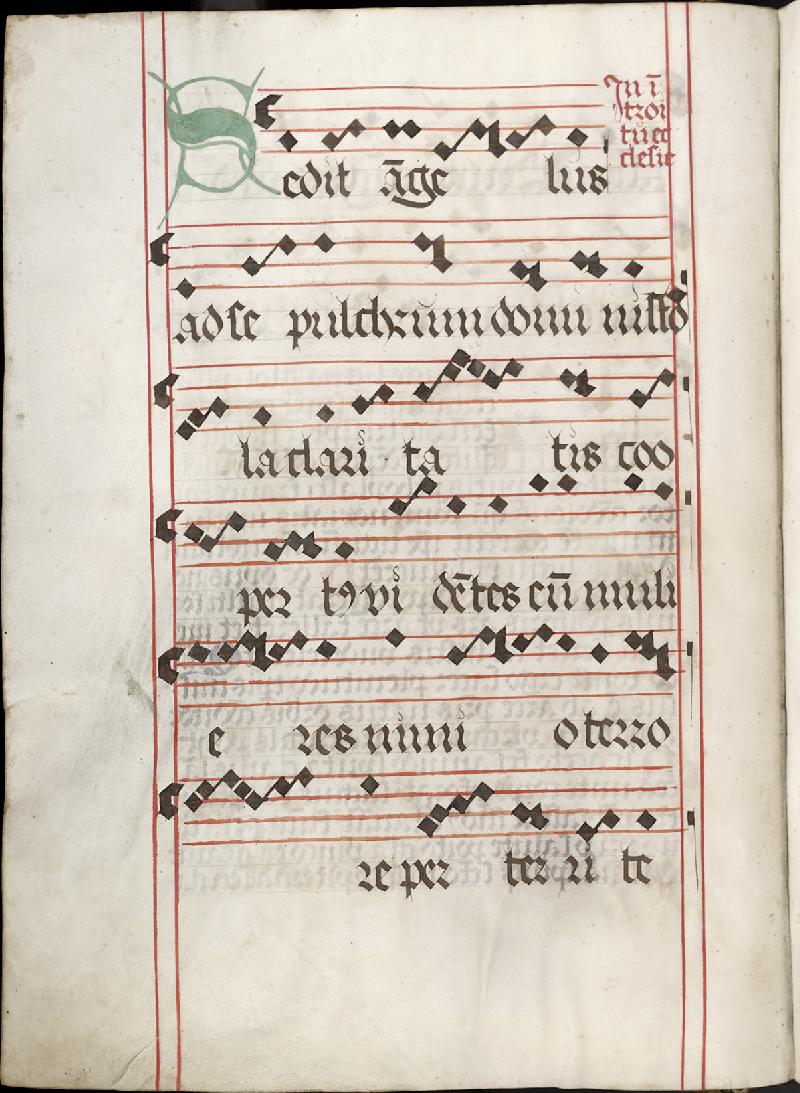 In ī
troi
tu ec
clesie
Sedit āge lus
ad se pulchrum domini
la clari ta tis coo
per t9 vi dētes eū muli
e res nimi o terro
re per ter ri te